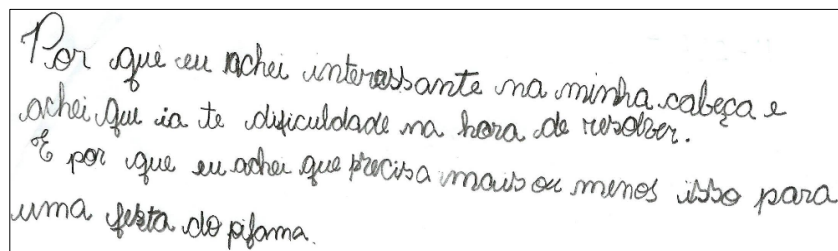 Por que eu achei interessante na minha cabeça e
achei que ia te dificuldade na hora de resolver.
E por que eu achei que precisa mais ou menos isso para
uma festa do pijama.